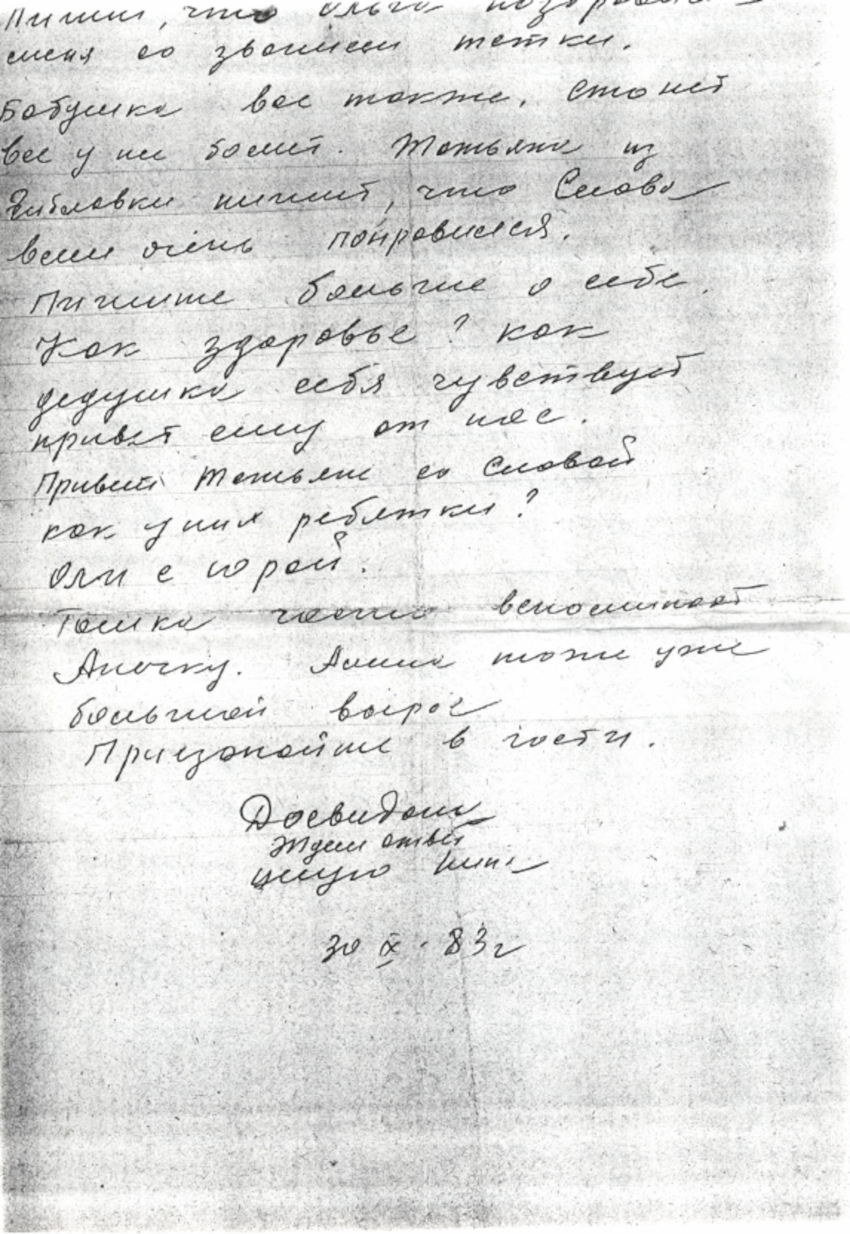 Пиши, что Ольга поздравил
меня со званием тетки.
Бабушка все также, стонет
все у ни болит. Татьяна из
пишит, что Слава
всем очень понравился.
Пишите больше о себе.
Как здоровье? как
дедушка себя чувствует
привет ему от нас.
Привет Татьяне со Славой
как у них ребятки?
Оли с Юрой.
Тошка часто вспоминает
Аночку. тоже уже
большой вырос
Приезжайте в гости.
Досвидание
Ждем ответ
целую Нина
30 IX. 83г